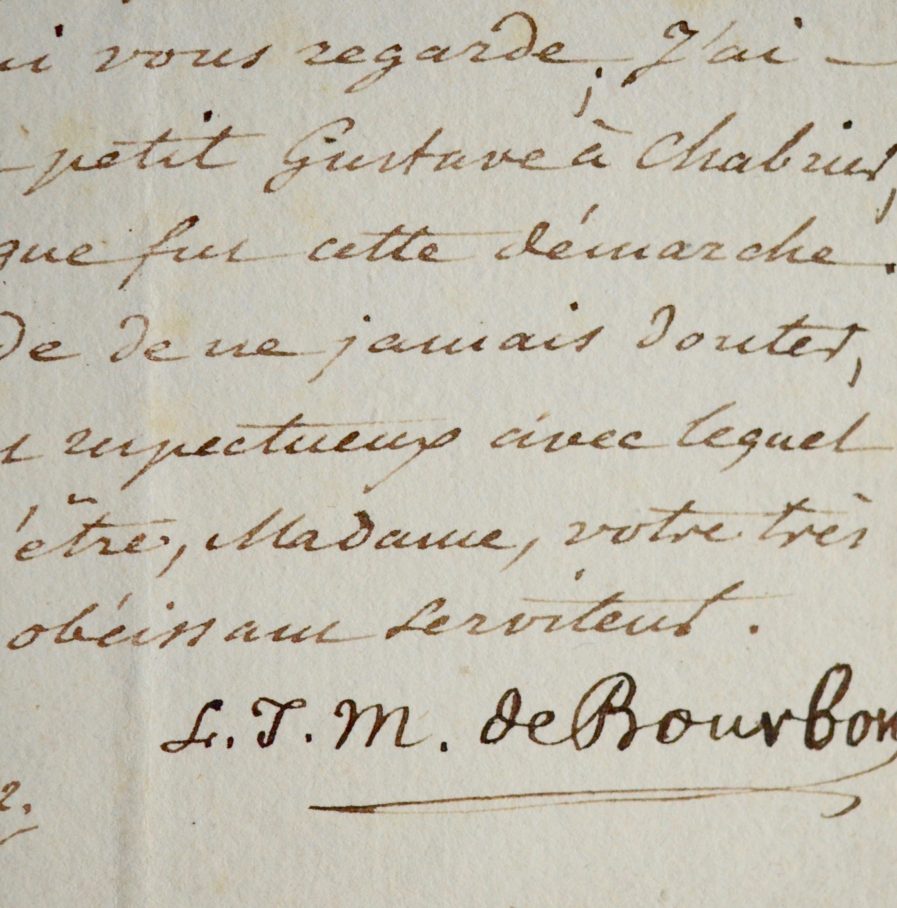 ui vous regarde; J'ai
petit Gustave à Chabrier,
que sur cette démarche.
de de ne jamais douter,
respectueux avec lequel
être, Madame, votre très
obéissant serviteur.
L. J. M. de Bourbon
2.